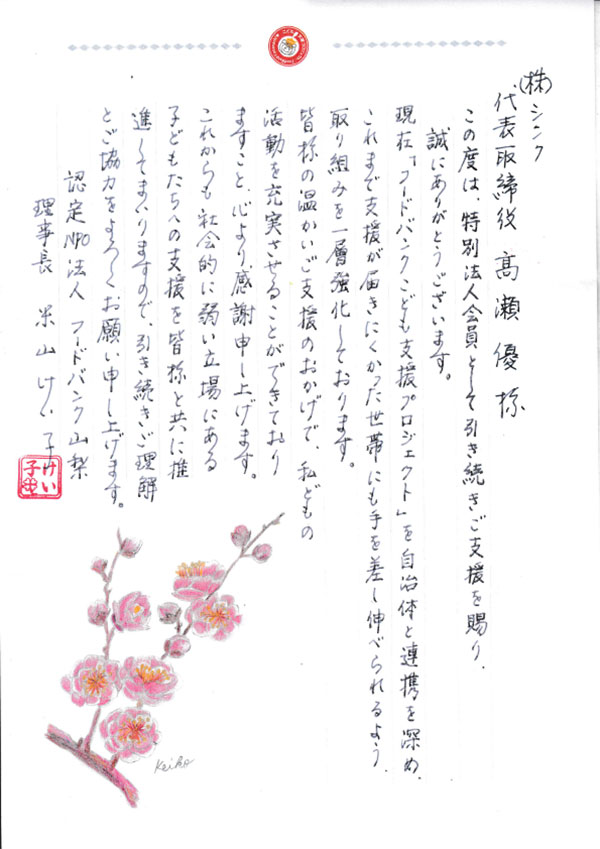 (株)シンク
代表取締役 高瀬優様
この度は、特別法人会員として引き続きご支援を賜り、
誠にありがとうございます。
現在、「フードバンクこども支援プロジェクト」を自治体と連携を深め、
これまで支援が届きにくかった世帯にも手を差し伸べられるよう、
取り組みを一層強化しております。
皆様の温かいご支援のおかげで、私どもの
活動を充実させることができており
ますこと、心より感謝申し上げます。
これからも社会的に弱い立場にある
子どもたちへの支援を皆様と共に推
進してまいりますので、引き続きご理解
とご協力をよろしくお願い申し上げます。
認定NPO法人 フードバンク山梨
理事長 米山けい子
Keiko